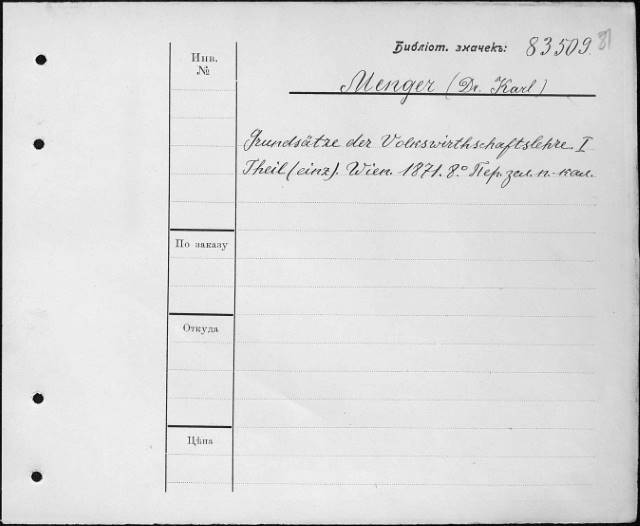 Библіот. значекъ: 83509.81
Инв.
№
Menger (Dr. Karl)
Grundsätze der Volkswirthschaftslehre. I
Theil (einz). Wien. 1871. 8.° Пер. зел. п.-кал.
По заказу
Откуда
Цѣна